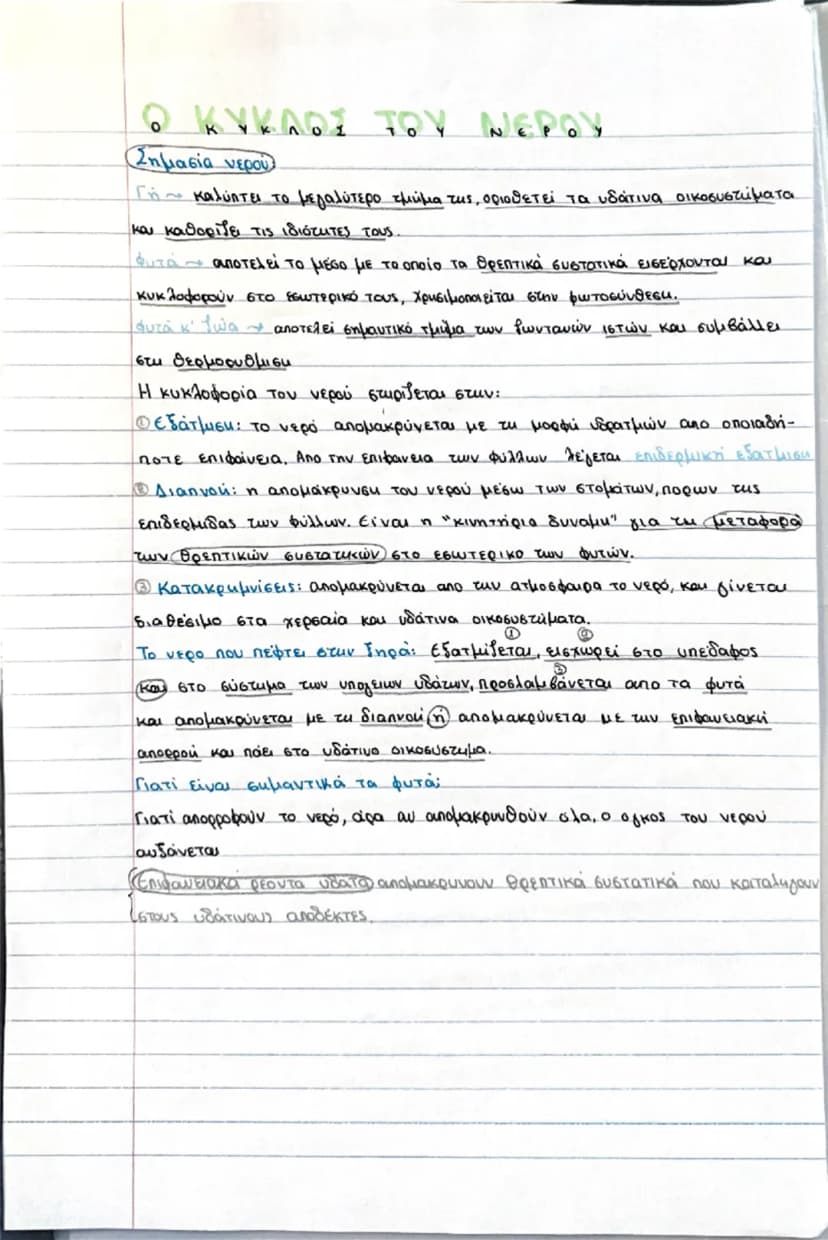 Ο ΚΥΚΛΟΣ ΤΟΥ ΝΕΡΟΥ
Ο ΚΥΚΛΟΣ ΤΟΥ ΝΕΡΟΥ
Σημασία νερού
Γή → καλύπτει το μεγαλύτερο τμήμα της, οριοθετεί τα υδάτινα οικοσυστήματα
και καθορίζει τις ιδιότητες τους.
Φυτά → αποτελεί το μέσο με το οποίο τα θρεπτικά συστατικά εισέρχονται και
κυκλοφορούν στο εσωτερικό τους, χρησιμοποιείται στην φωτοσύνθεση.
Φυτά κ' ζώα → αποτελεί σημαντικό τμήμα των ζωντανών ιστών και συμβάλλει
στη θερμορυθμιση
Η κυκλοφορία του νερού στηρίζεται στην:
① Εξάτμιση: το νερό απομακρύνεται με τη μορφή υδρατμών απο οποιαδή-
ποτε επιφάνεια. Απο την επιφανεια των φύλλων λέγεται επιδερμική εξατμιση
② Διαπνοή: η απομάκρυνση του νερού μέσω των στομάτων, πορων της
επιδερμιδας των φύλλων. Είναι η "κινητήρια δυναμη" για τη μεταφορά
των θρεπτικών συστατικών στο εσωτερικο των φυτών.
③ Κατακρημνίσεις: απομακρύνεται απο την ατμοσφαιρα το νερό, και γίνεται
διαθέσιμο στα χερσαία και υδάτινα οικοσυστήματα.
① ②
Το νερο που πέφτει στην ξηρά: Εξατμίζεται, εισχωρεί στο υπεδαφος
③
και στο σύστημα των υπογειων υδάτων, προσλαμβάνεται απο τα φυτά
και απομακρύνεται με τη διαπνοή ή απομακρύνεται με την επιφανειακή
απορροή και πάει στο υδάτινο οικοσύστημα.
Γιατί είναι σημαντικά τα φυτά;
Γιατί απορροφούν το νερό, άρα αν απομακρυνθούν όλα, ο ογκος του νερού
αυξάνεται
Επιφανειακά ρεοντα υδατα απομακρυνουν θρεπτικά συστατικά που καταληγουν
στους υδάτινους αποδέκτες.